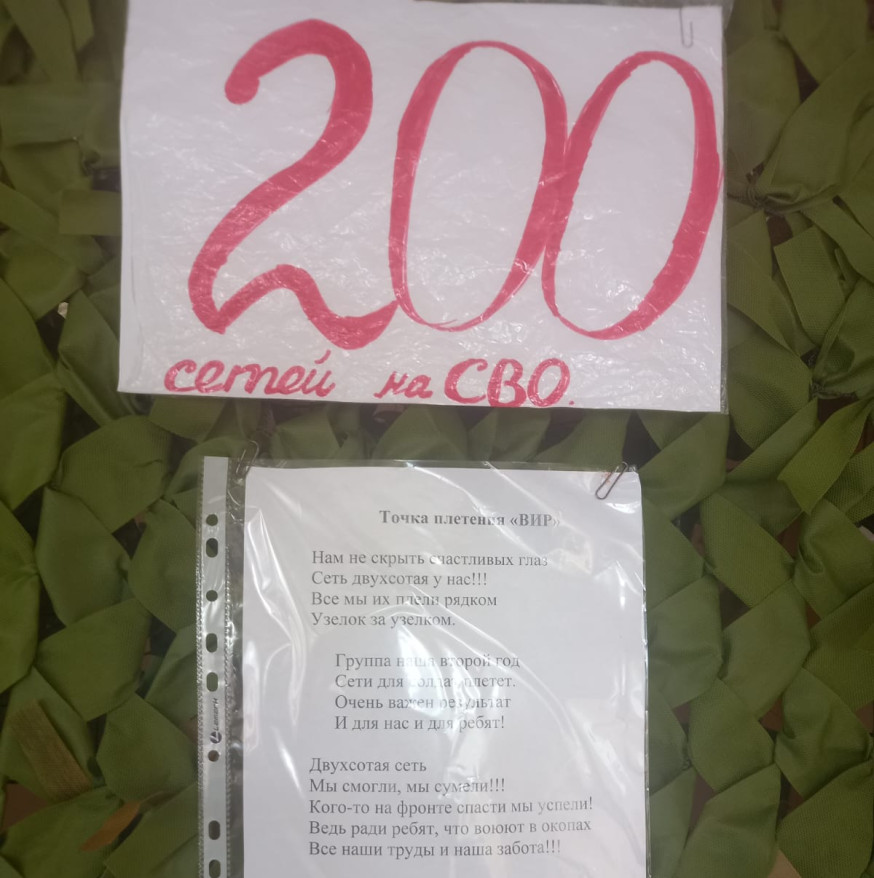 200
сетей на СВО.
Точка плетения «ВИР»
Нам не скрыть счастливых глаз
Сеть двухсотая у нас!!!
Все мы их плели рядком
Узелок за узелком.
Группа наша второй год
Сети для солдат плетет.
Очень важен результат
И для нас и для ребят!
Двухсотая сеть
Мы смогли, мы сумели!!!
Кого-то на фронте спасти мы успели!
Ведь ради ребят, что воюют в окопах
Все наши труды и наша забота!!!